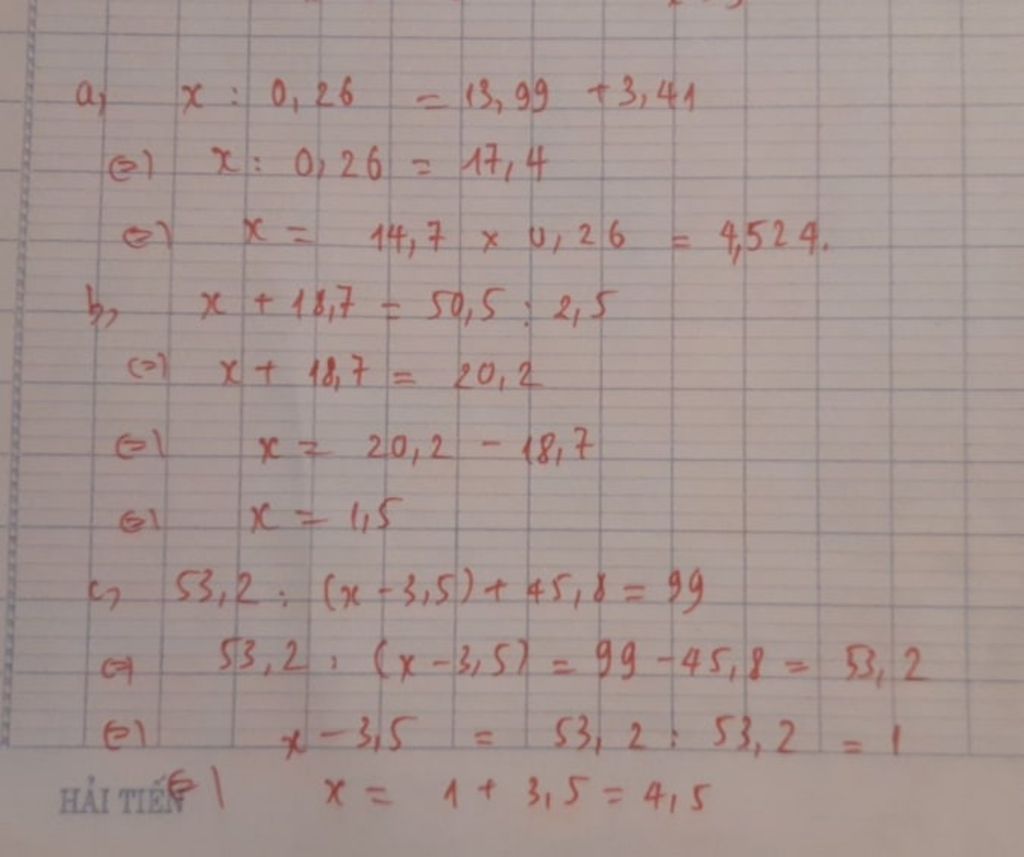 a, x : 0,26 = 13,99 + 3,41
<=> x : 0,26 = 17,4
<=> x = 14,7 x 0,26 = 4,524.
b, x + 18,7 = 50,5 : 2,5
<=> x + 18,7 = 20,2
<=> x = 20,2 - 18,7
<=> x = 1,5
c, 53,2 : (x - 3,5) + 45,8 = 99
<=> 53,2 : (x - 3,5) = 99 - 45,8 = 53,2
<=> x - 3,5 = 53,2 : 53,2 = 1
<=> x = 1 + 3,5 = 4,5
HẢI TIẾN